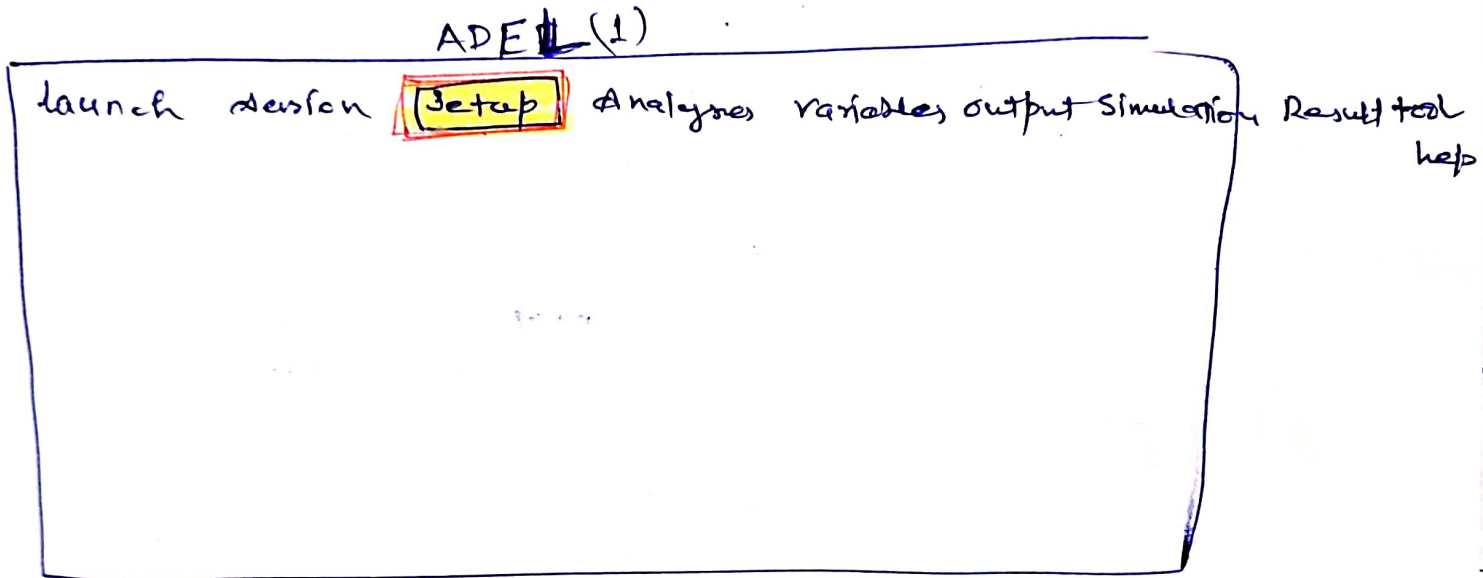 ADE L (1)
launch session Setup Analyses variables output Simulation Result tool
help